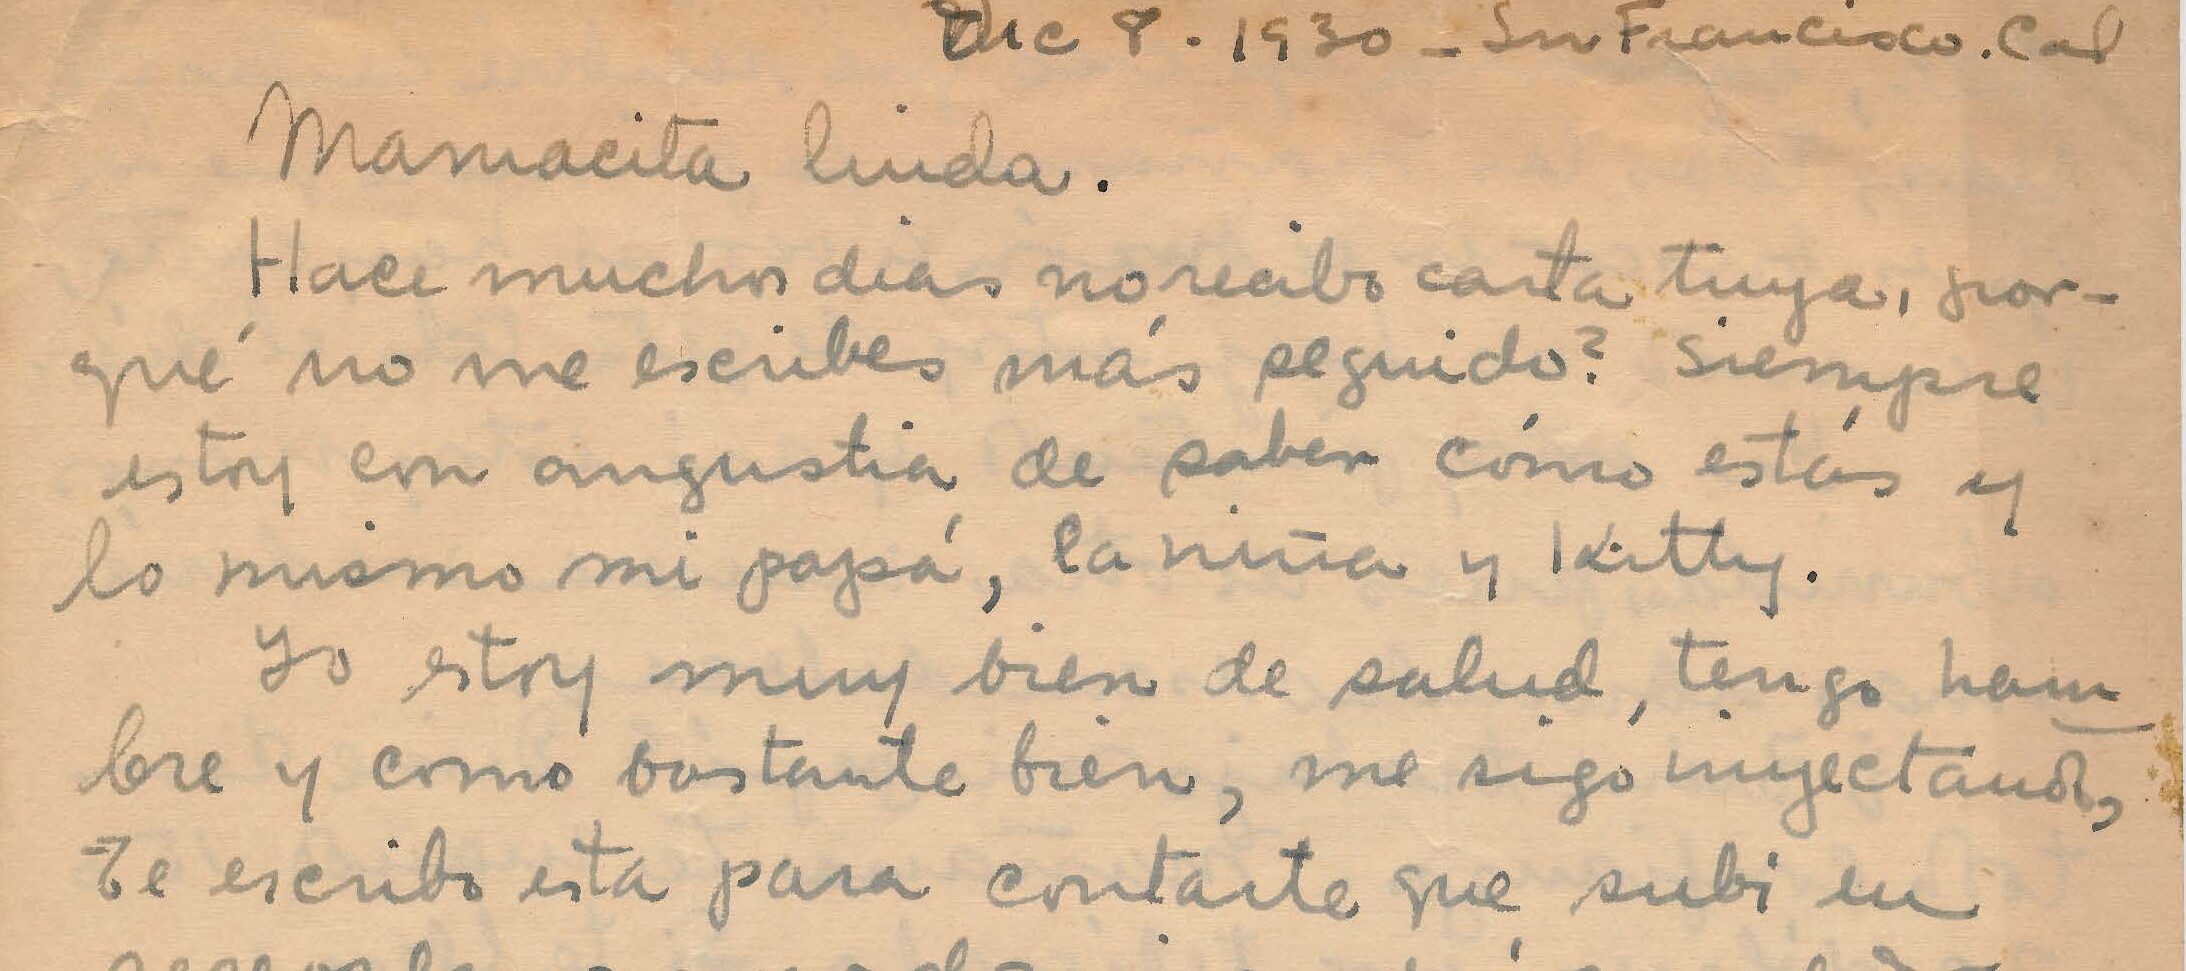 Dic 8. 1930 - Sn Francisco. Cal
Mamacita linda.
Hace muchos dias no recibo carta tuya, por-
qué no me escribes más seguido? Siempre
estoy con angustia de saber cómo estás y
lo mismo mi papá, la niña y Kitty.
Yo estoy muy bien de salud, tengo ham
bre y como bastante bien, me sigo inyectando,
Te escribo esta para contarte que subí en